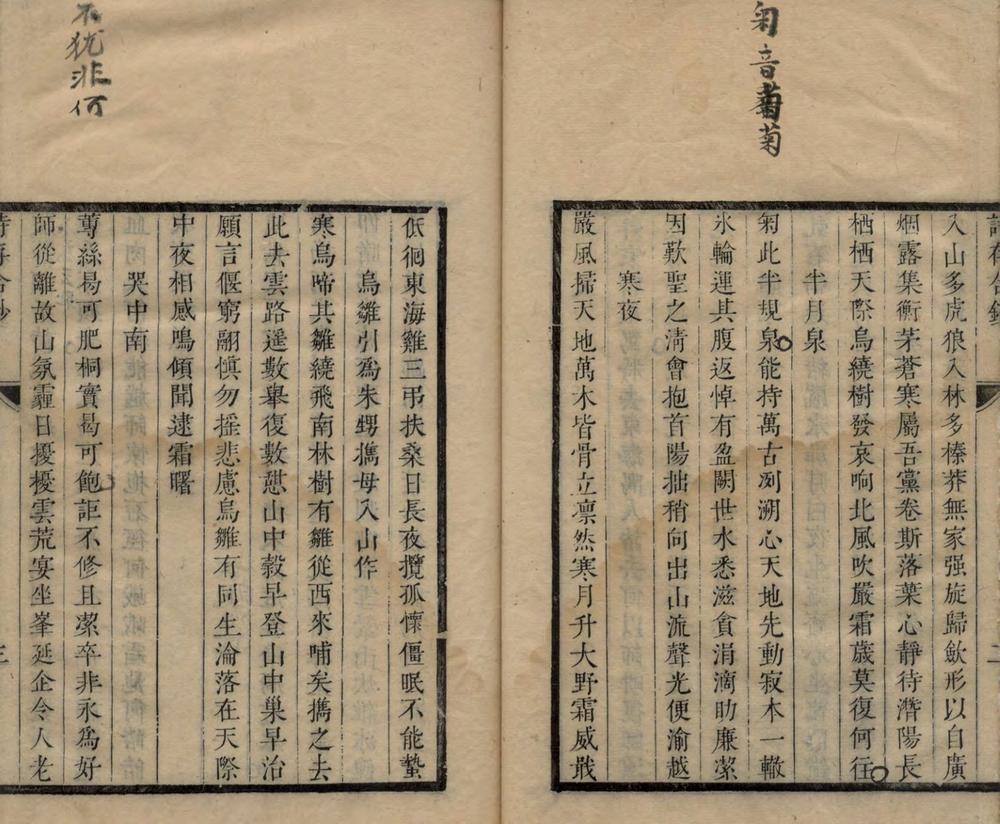 匊音菊菊
入山多虎狼入林多榛莽無家强旋歸歛形以自廣
烟露集衡茅蒼寒屬吾黨卷斯落葉心靜待潛陽長
栖栖天際烏繞樹發哀响北風吹嚴霜歲莫復何往
半月泉
匊此半規泉能持萬古冽溯心天地先動寂本一轍
氷輪運其腹返悼有盈闕世水悉滋貪涓滴助廉潔
因歎聖之淸會抱首陽拙稍向出山流聲光便渝越
寒夜
嚴風掃天地萬木皆骨立凛然寒月升大野霜威戢
不犹非何
低徊東海雞三弔扶桑日長夜攬孤懷僵眠不能蟄
烏雛引爲朱甥擕母入山作
寒烏啼其雛繞飛南林樹有雛從西來哺矣擕之去
此去雲路遥數舉復數憇山中穀早登山中巢早治
願言偃窮翮愼勿摇悲慮烏雛有同生淪落在天際
中夜相感鳴傾聞逮霜曙
哭中南
蓴絲曷可肥桐實曷可飽詎不修且潔卒非永爲好
師從離故山氛霾日擾擾雲荒宴坐峯延企令人老